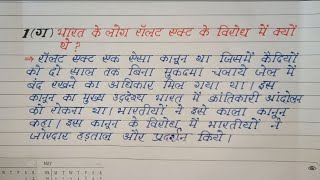 1(ग) भारत के लोग रॉलट एक्ट के विरोध में क्यों
थे?
→ रॉलट एक्ट एक ऐसा कानून था जिसमें कैदियों
को दो साल तक बिना मुकदमा चलाये जेल में
बंद रखने का अधिकार मिल गया था। इस
कानून का मुख्य उद्देश्य भारत में क्रांतिकारी आंदोलन
को रोकना था। भारतीयों ने इसे काला कानून
कहा। इस कानून के विरोध में भारतीयों ने
जोरदार हड़ताल और प्रदर्शन किये।